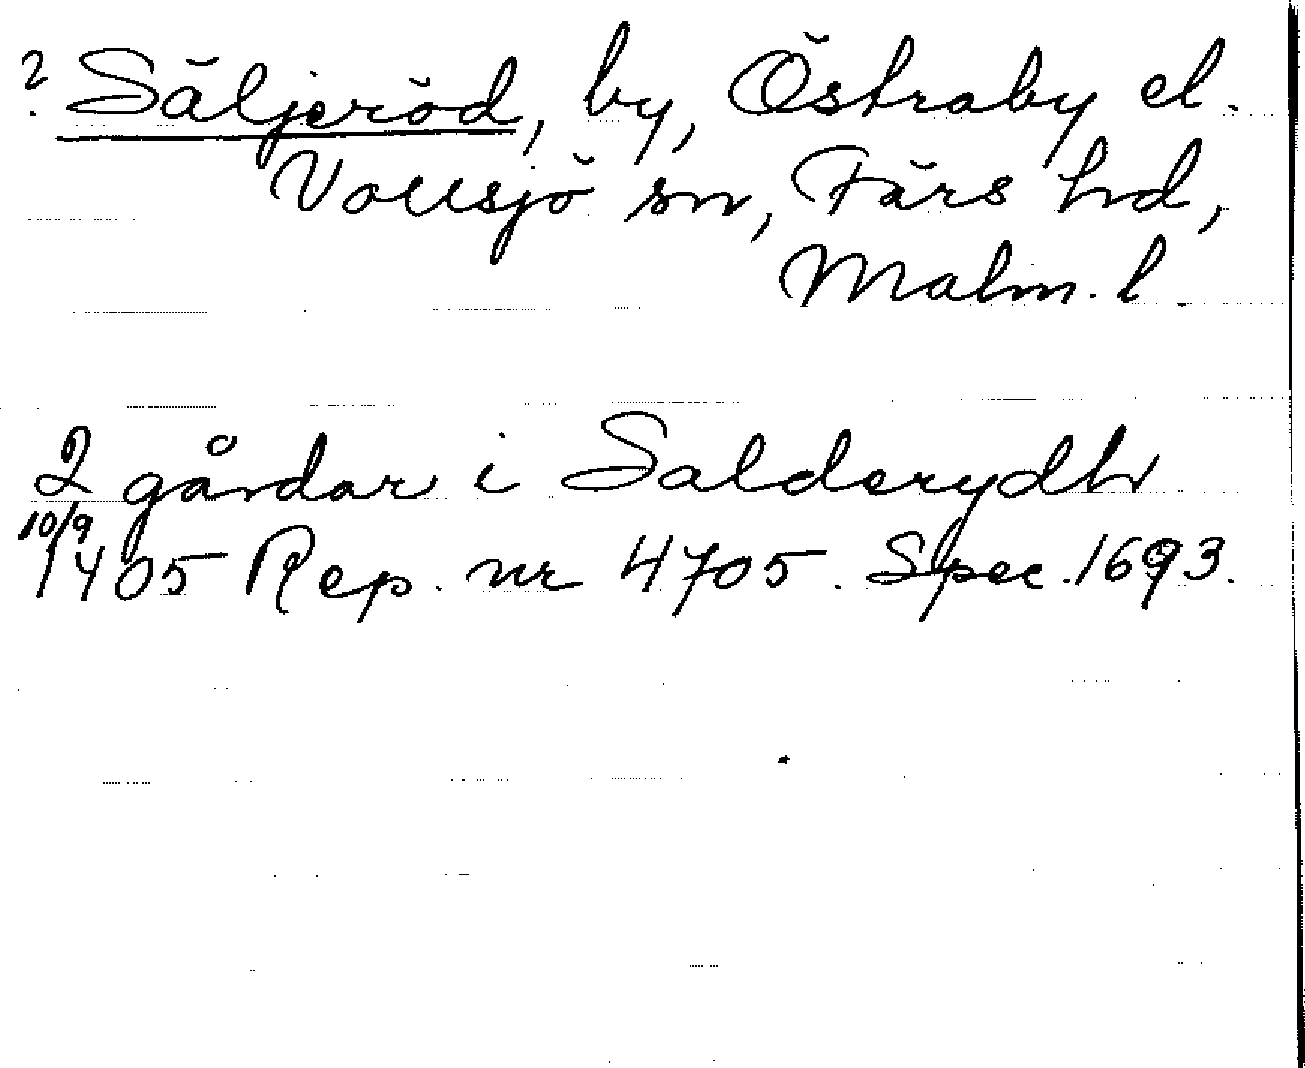 ? Säljeröd, by, Östraby el.
Vollsjö sn, Färs hd,
Malm. l.
2 gårdar i Salderydh
10/9
1405 Rep. nr 4705. Spec. 1693.